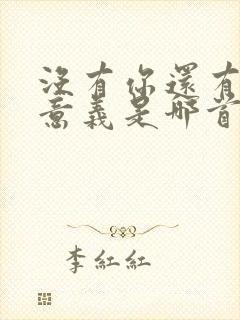 沒有你還有
意義是那首
李紅紅